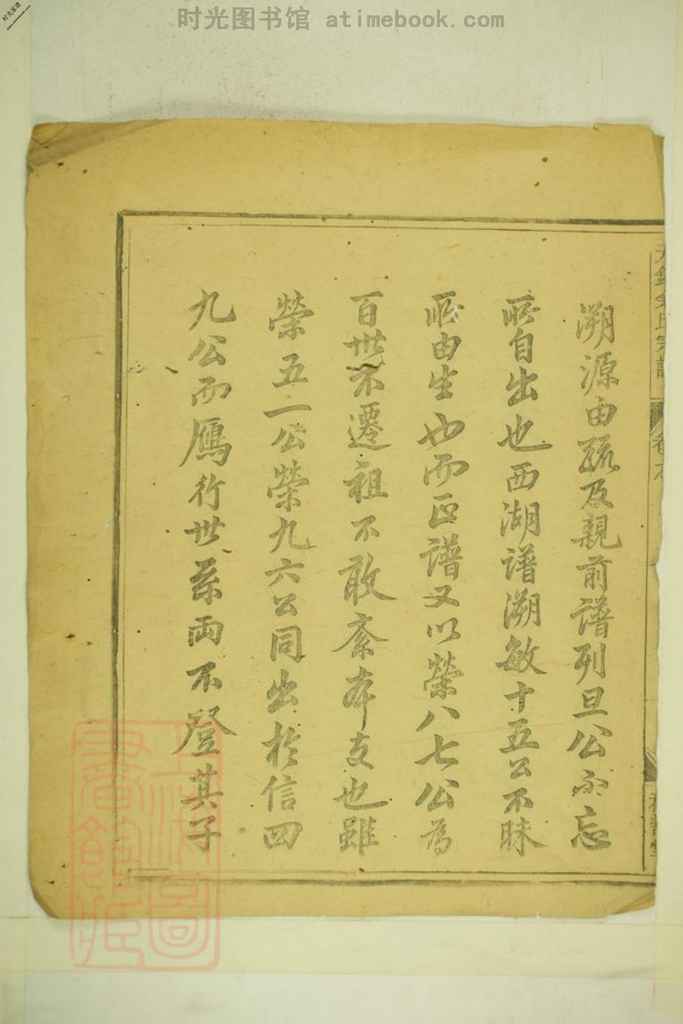 时光图书馆 atimebook.com
溯源由疏及親前譜列旦公不忘
所自出也西湖譜溯敏十五公不昧
所由生也而正譜又以榮八七公為
百世不遷祖不敢紊本支也雖
榮五一公榮九六公同出於信四
九公而鴈行世系兩不登其子